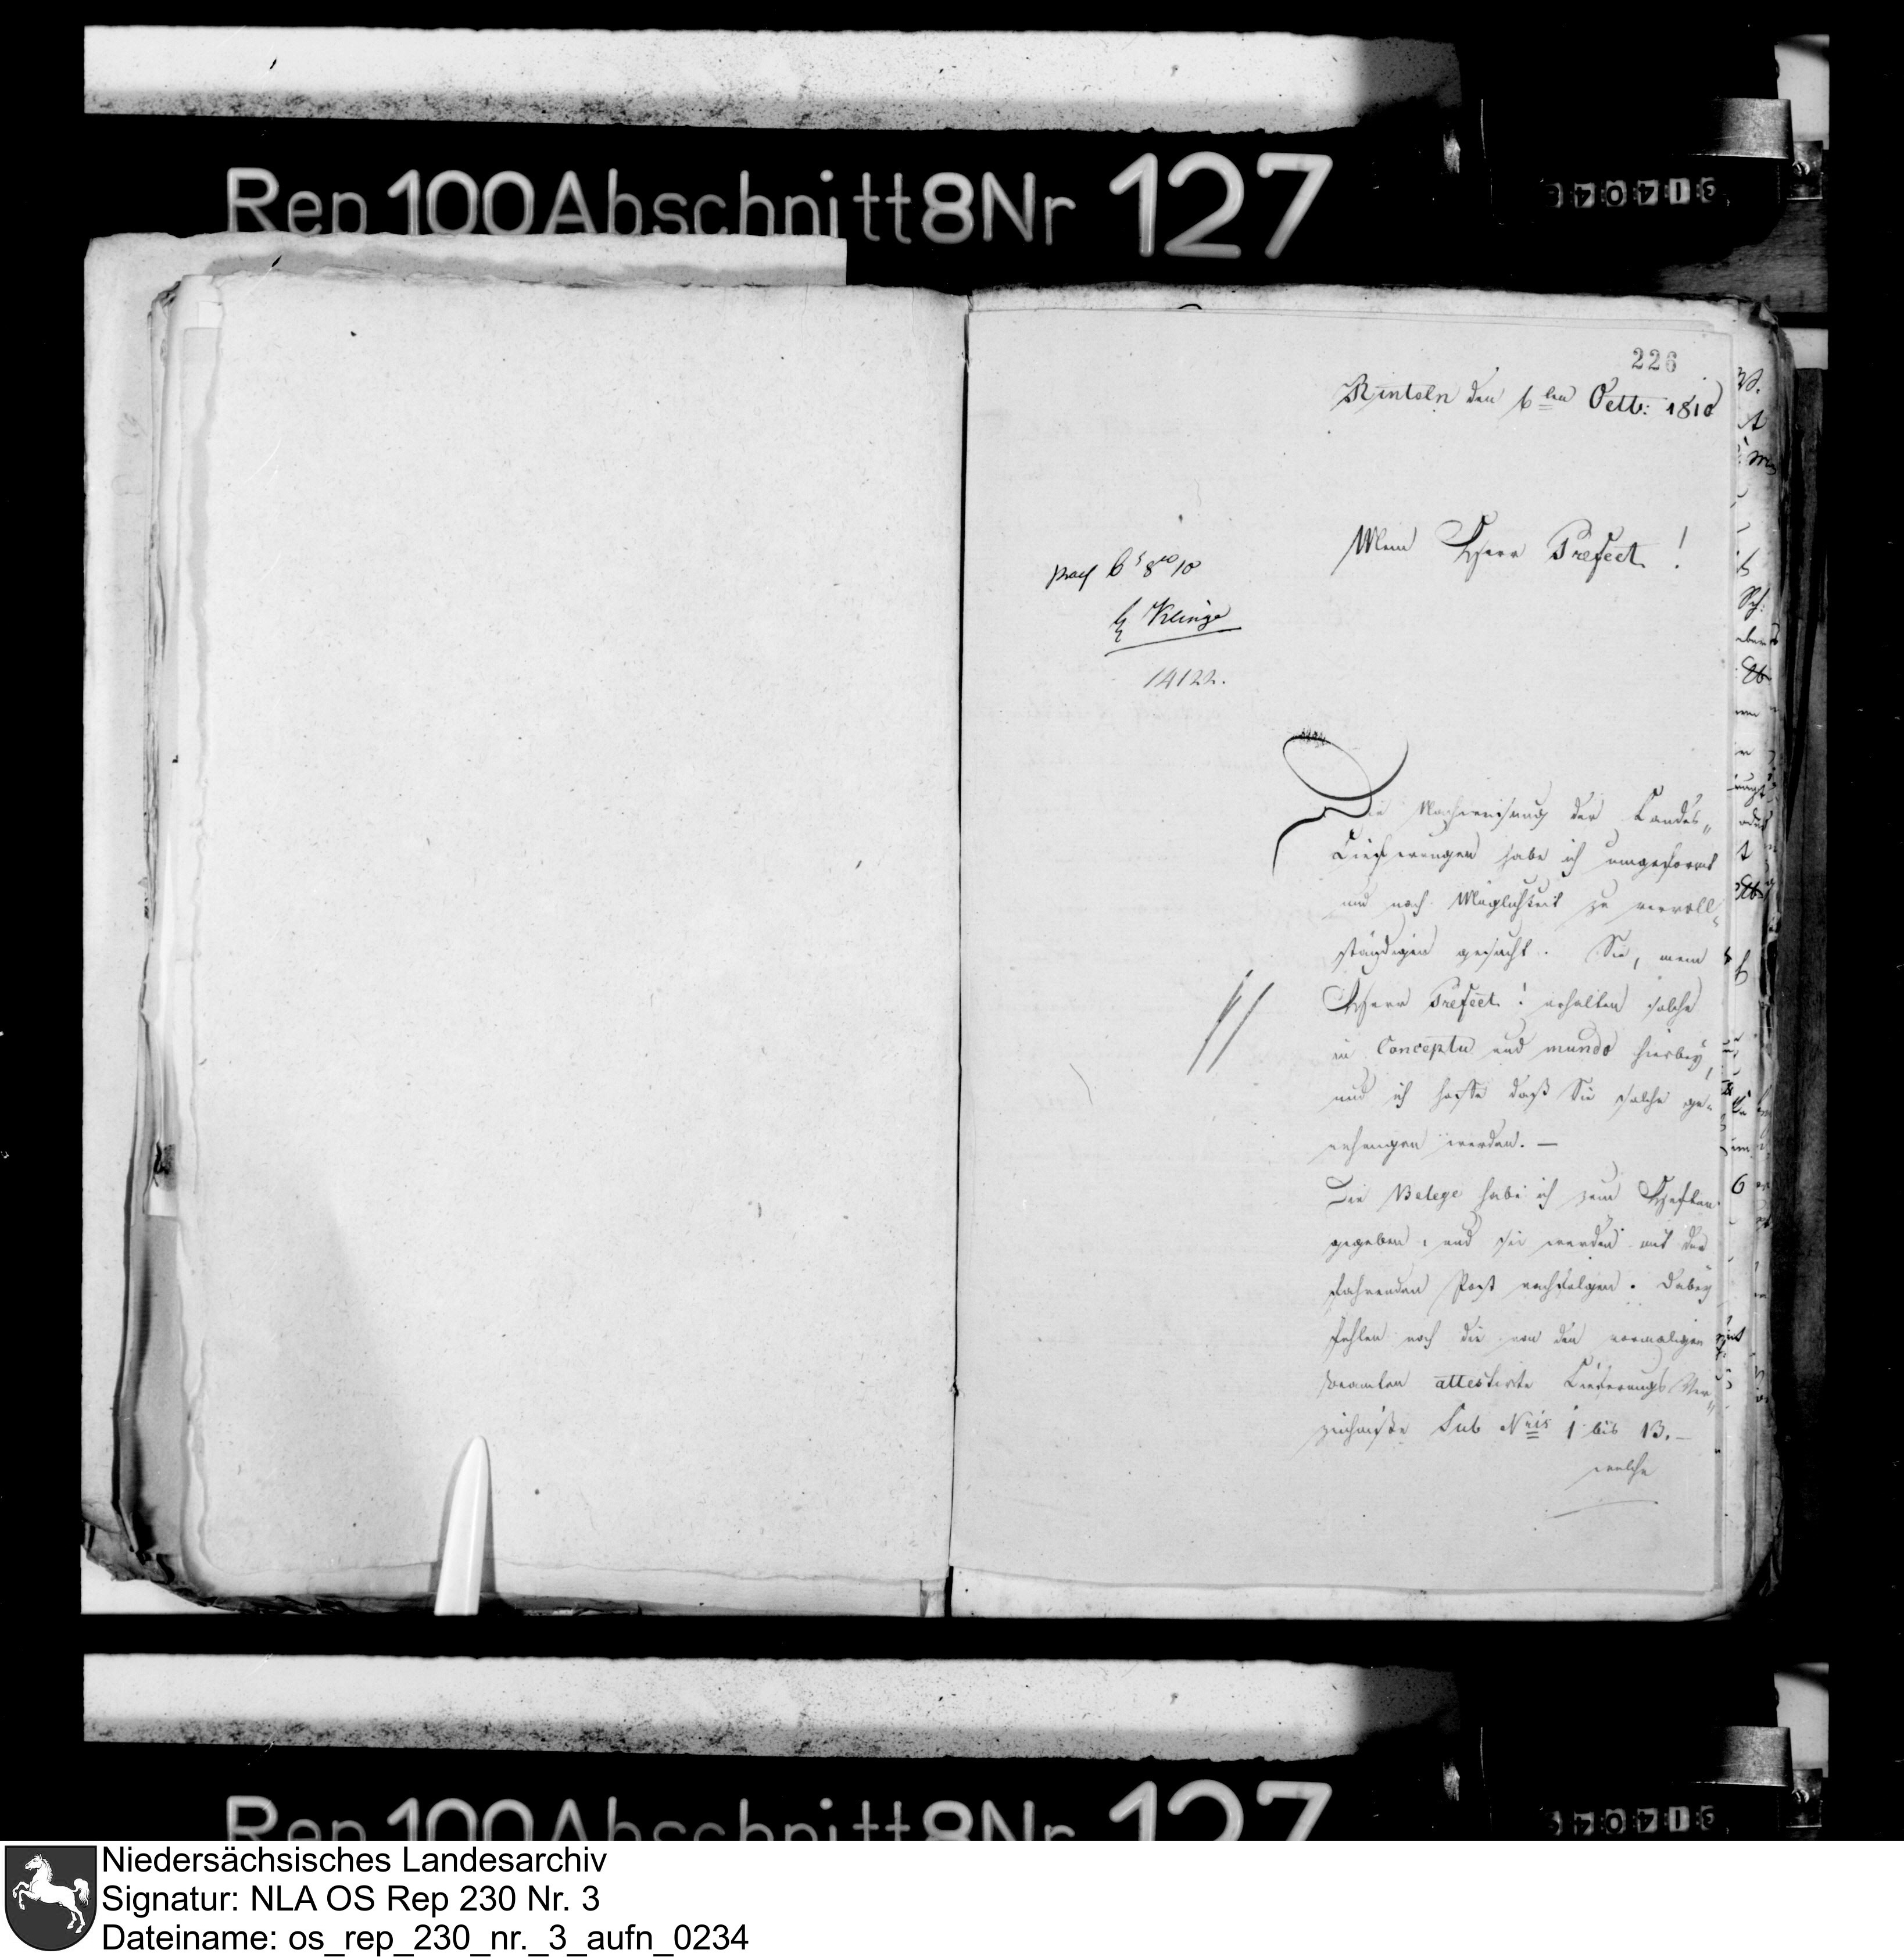 Rep 100 Abschnitt 8 Nr 127
226
Rinteln den 6ten Octb: 1810
Mein Herr Prefect!
14122.
Die Nachweisung der Landes„
Lieferungen habe ich umgeformt
und nach Möglichkeit zu vervoll-
ständigen gesucht. Sie, mein
Herr Prefect! erhalten solche
in Conceptu und mundo hierbey,
und ich hoffe daß Sie solche ge-
nehmigen werden. —
Die Belege habe ich zum Heften
gegeben, und sie werden mit der
fahrenden Post nachfolgen. Dabey
fehlen noch die von den vormaligen
Beamten attestirte Lieferungs Ver„
zeichniße Sub Nris 1 bis 13. —
welche
Rep 100 Abschnitt 8 Nr 127
Niedersächsisches Landesarchiv
Signatur: NLA OS Rep 230 Nr. 3
Dateiname: os_rep_230_nr._3_aufn_0234